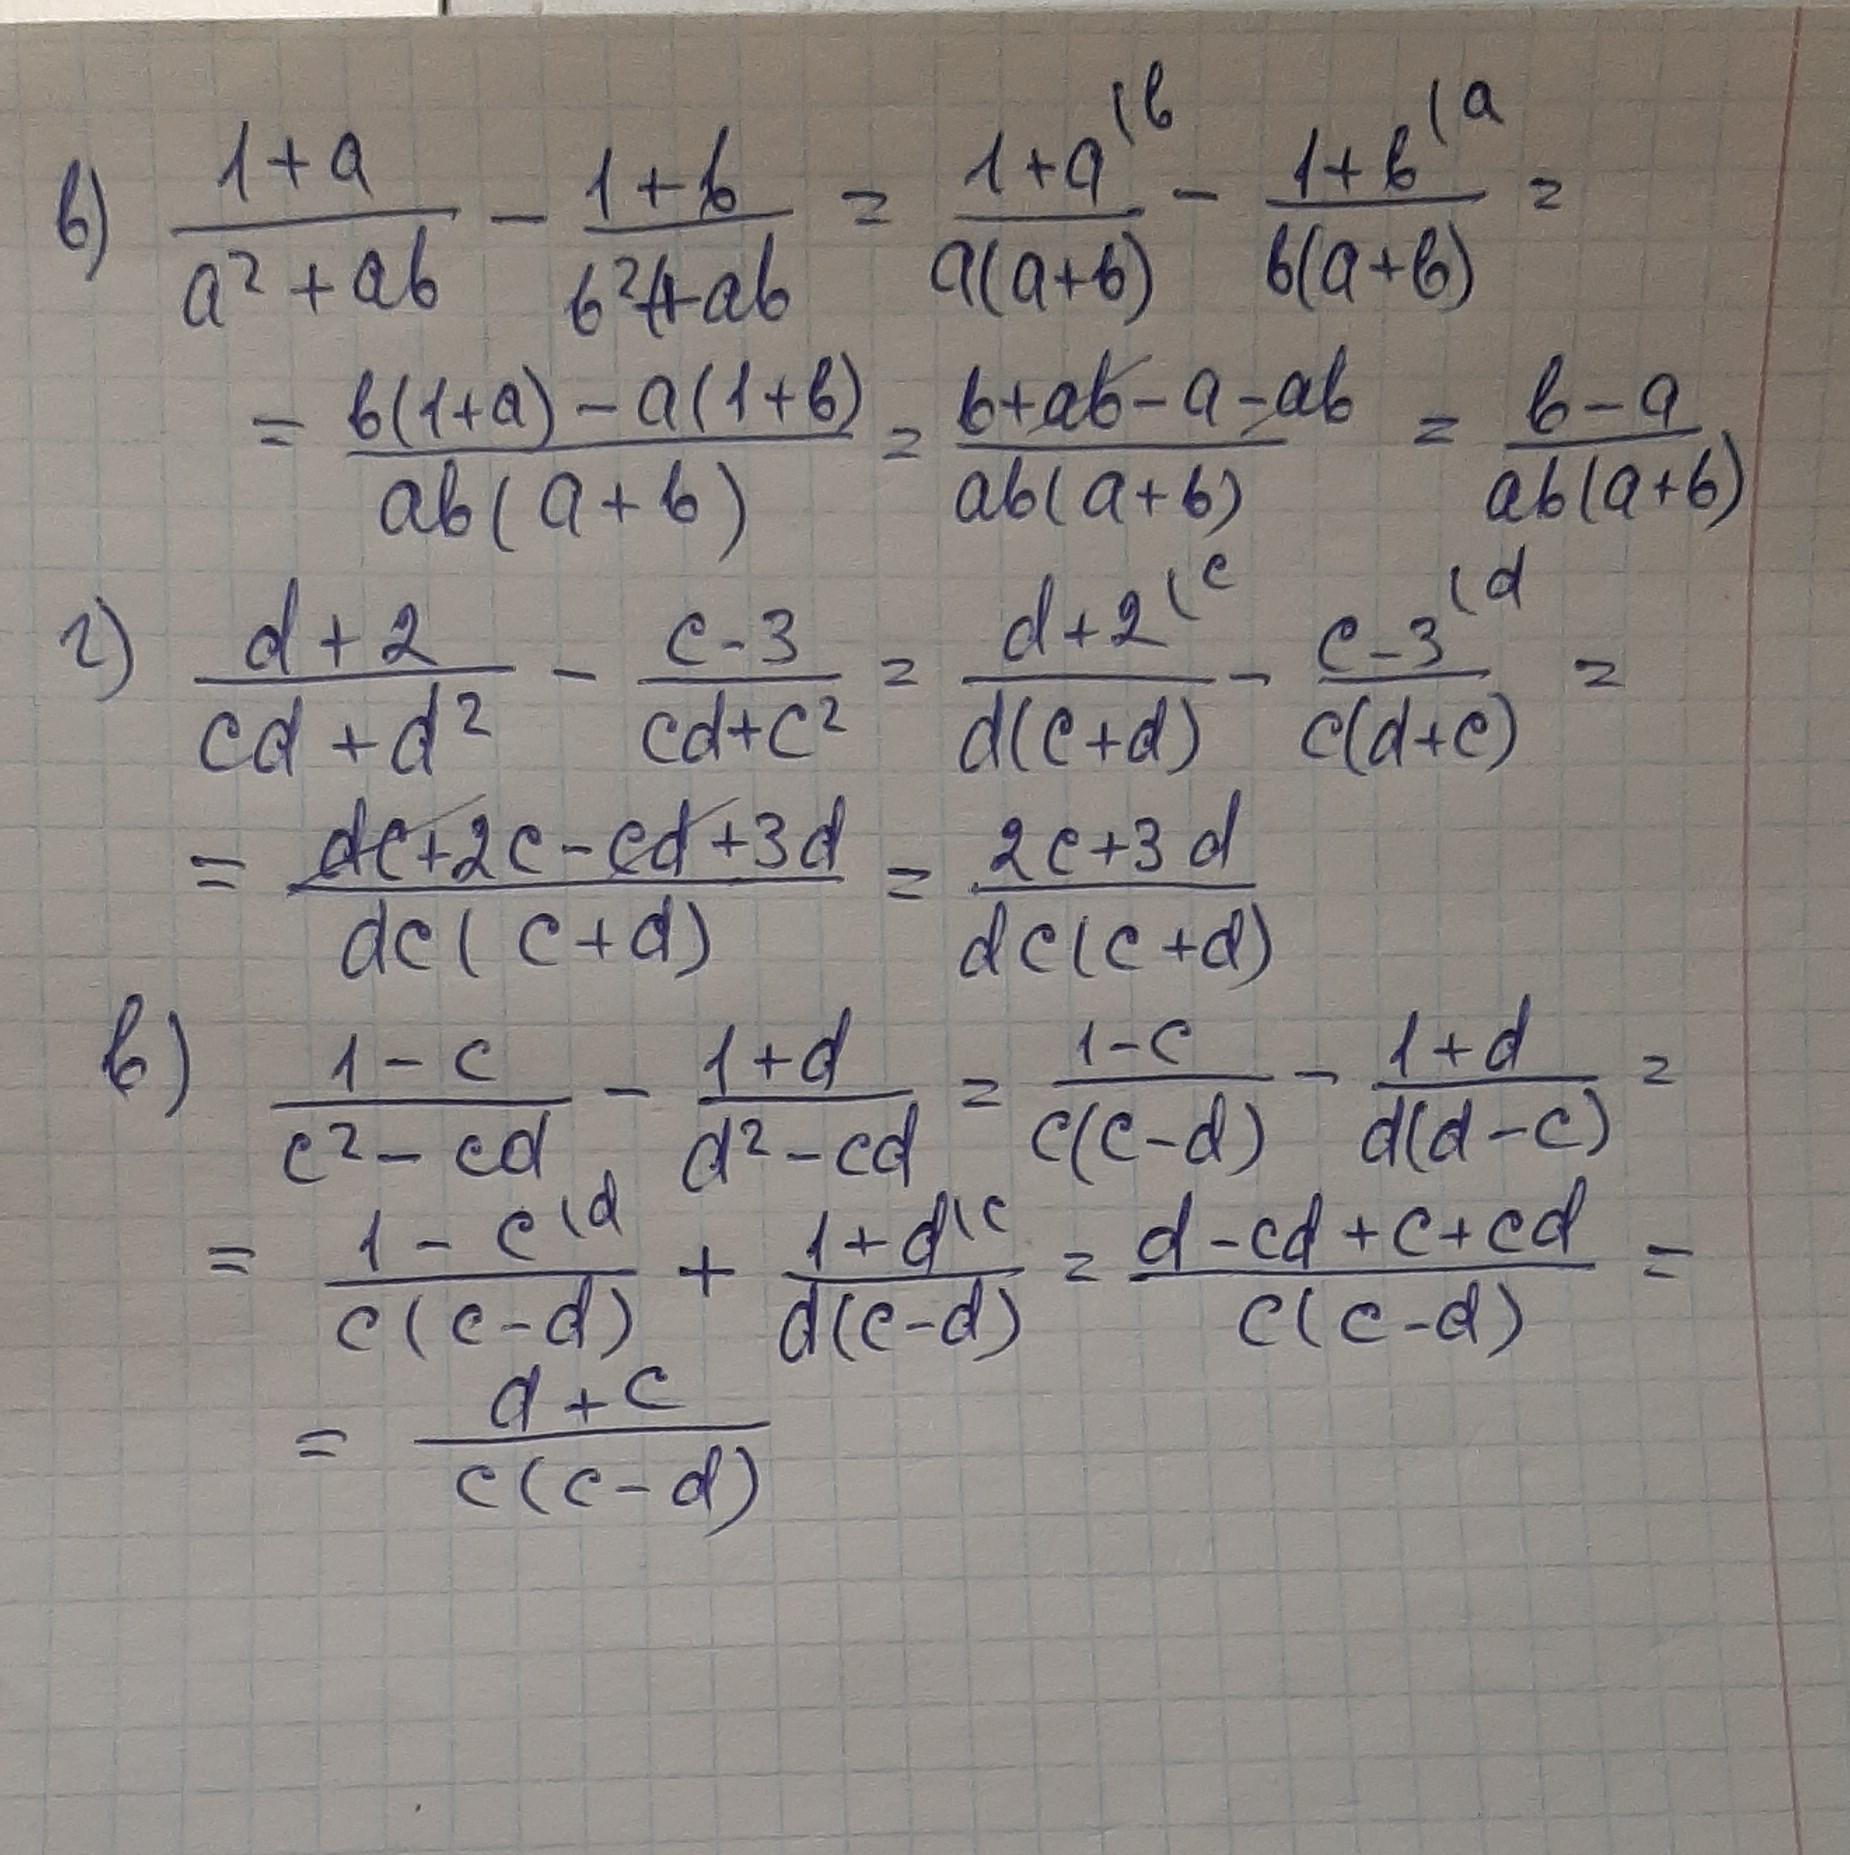 в) (1+a)/(a²+ab) − (1+b)/(b²+ab) = (1+a)/(a(a+b)) \b − (1+b)/(b(a+b)) \a =
= (b(1+a)−a(1+b))/(ab(a+b)) = (b+ab−a−ab)/(ab(a+b)) = (b−a)/(ab(a+b))
г) (d+2)/(cd+d²) − (c−3)/(cd+c²) = (d+2)/(d(c+d)) \c − (c−3)/(c(d+c)) \d =
= (dc+2c−cd+3d)/(dc(c+d)) = (2c+3d)/(dc(c+d))
в) (1−c)/(c²−cd) − (1+d)/(d²−cd) = (1−c)/(c(c−d)) − (1+d)/(d(d−c)) =
= (1−c)/(c(c−d)) \d + (1+d)/(d(c−d)) \c = (d−cd+c+cd)/(c(c−d)) =
= (d+c)/(c(c−d))